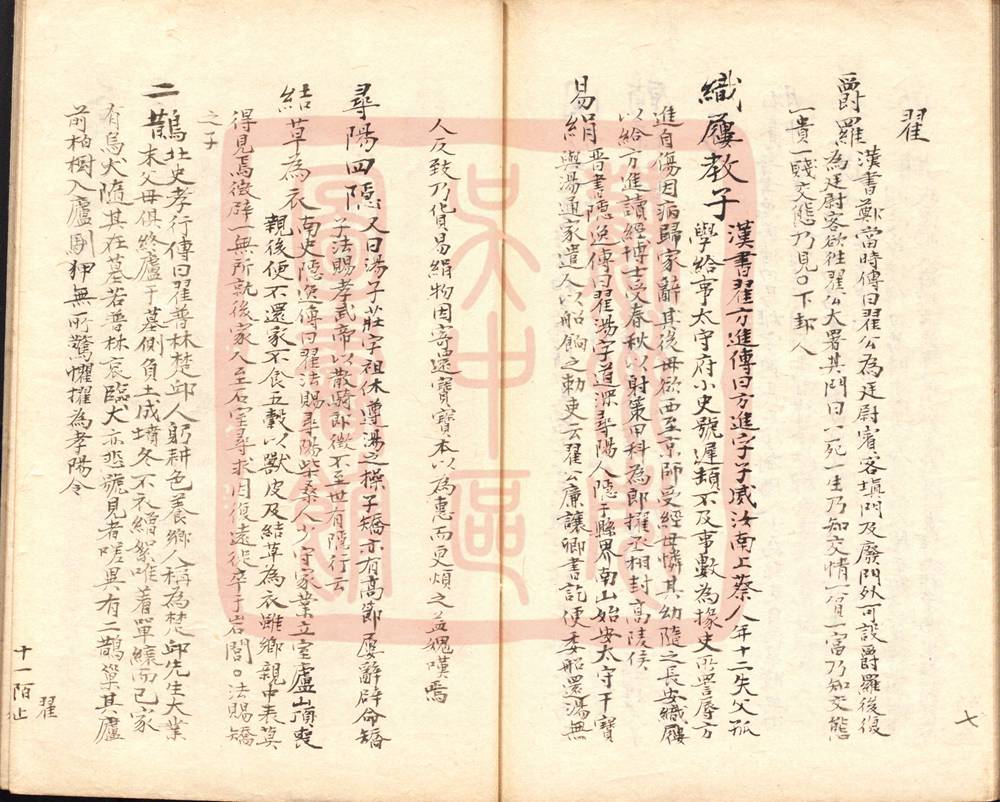 翟
爵羅 漢書鄭當時傳曰翟公為廷尉賓客填門及廢門外可設爵羅後復
為廷尉客欲往翟公大署其門曰一死一生乃知交情一貧一富乃知交態
一貴一賤交態乃見○下邽人
織屨教子 漢書翟方進傳曰方進字子威汝南上蔡人年十二失父孤
學給事太守府小史號遲頓不及事數為掾史所詈辱方
進自傷因病歸家辭其後母欲西至京師受經母憐其幼隨之長安織屨
以給方進讀經博士受春秋以射策甲科為郎擢丞相封高陵侯
易絹 晉書隱逸傳曰翟湯字道深尋陽人隱于縣界南山始安太守干寶
與湯通家遣人以船餉之勅吏云翟公廉讓卿書訖便委船還湯無
七
人反致乃貨易絹物因寄還寶寶本以為惠而更煩之益愧嘆焉
尋陽四隱 又曰湯子莊字祖休遵湯之操子矯亦有高節屢辭辟命矯
子法賜孝武帝以散騎郎徵不至世有隱行云
結草為衣 南史隱逸傳曰翟法賜尋陽柴桑人少守家業立室廬山頂喪
親後便不還家不食五穀以獸皮及結草為衣雖鄉親中表莫
得見焉徵辟一無所就後家人至石室尋求因復遠徙卒于岩間○法賜矯
之子
二鵲 北史孝行傳曰翟普林楚邱人躬耕色養鄉人稱為楚邱先生大業
末父母俱終廬于墓側負土成墳冬不衣繒絮唯著單縗而已家
有烏犬隨其在墓若普林哀臨犬亦悲號見者嗟異有二鵲巢其廬
前柏樹入廬馴狎無所驚懼擢為孝陽令
翟
十一陌